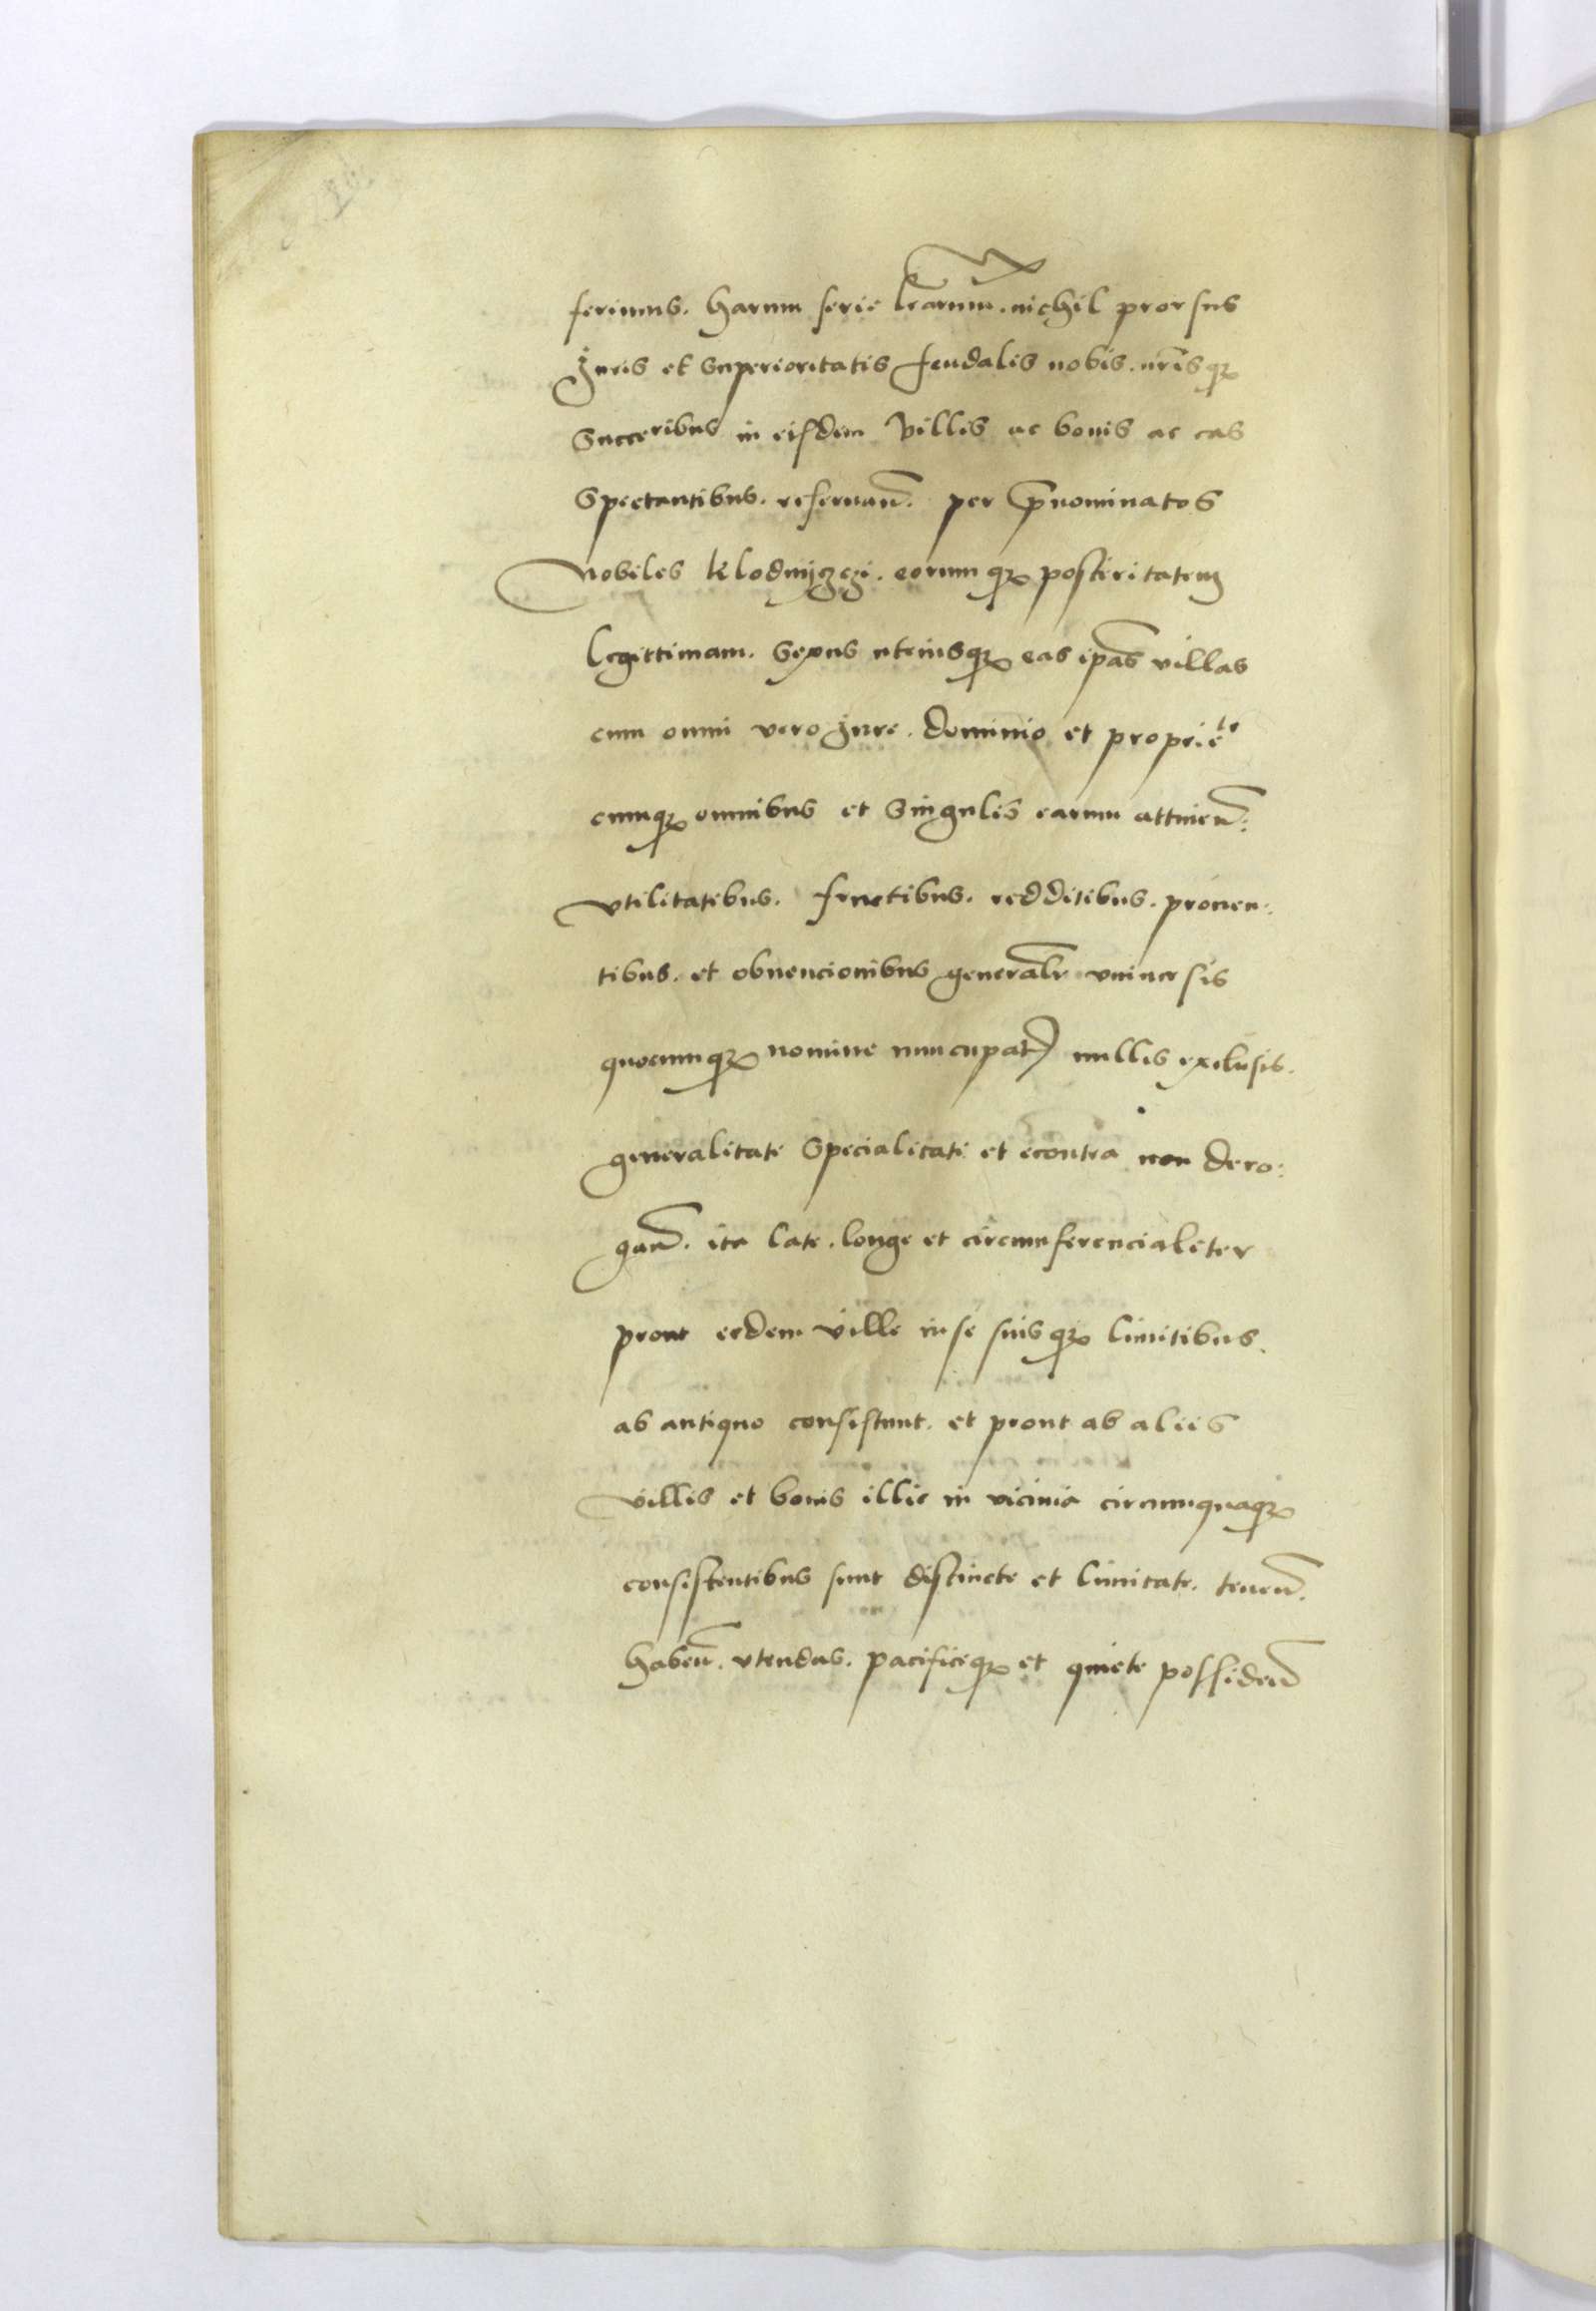 ferimus. harum serie lrarum. nichil prorsus
Juris et Superioritatis feudalis nobis. nrisqz
Succeribus in eisdem Villis ac bonis ac eas
Spectantibus. reseruan. per pnominatos
Nobiles Klodnijczi. eorumqz posteritatem
legittimam. Sexus utriusqz eas ipas villas
cum omni vero Jure. dominio et propriete
cumqz omnibus et Singulis earum attinen:
vtilitatibus. fructibus. redditibus. prouen:
tibus. et obuencionibus generalr vniuersis
quocumqz nomine nuncupat nullis exclusis.
generalitate Specialitati et econtra non dero:
gan. ita late. longe et circumferencialiter
prout eedem ville in se suisqz limitibus.
ab antiquo consistunt. et prout ab aliis
villis et bonis illic in vicinia circumquaqz
consistentibus sunt distincte et limitate. tenen.
haben. vtendas. pacificeqz et quiete possiden